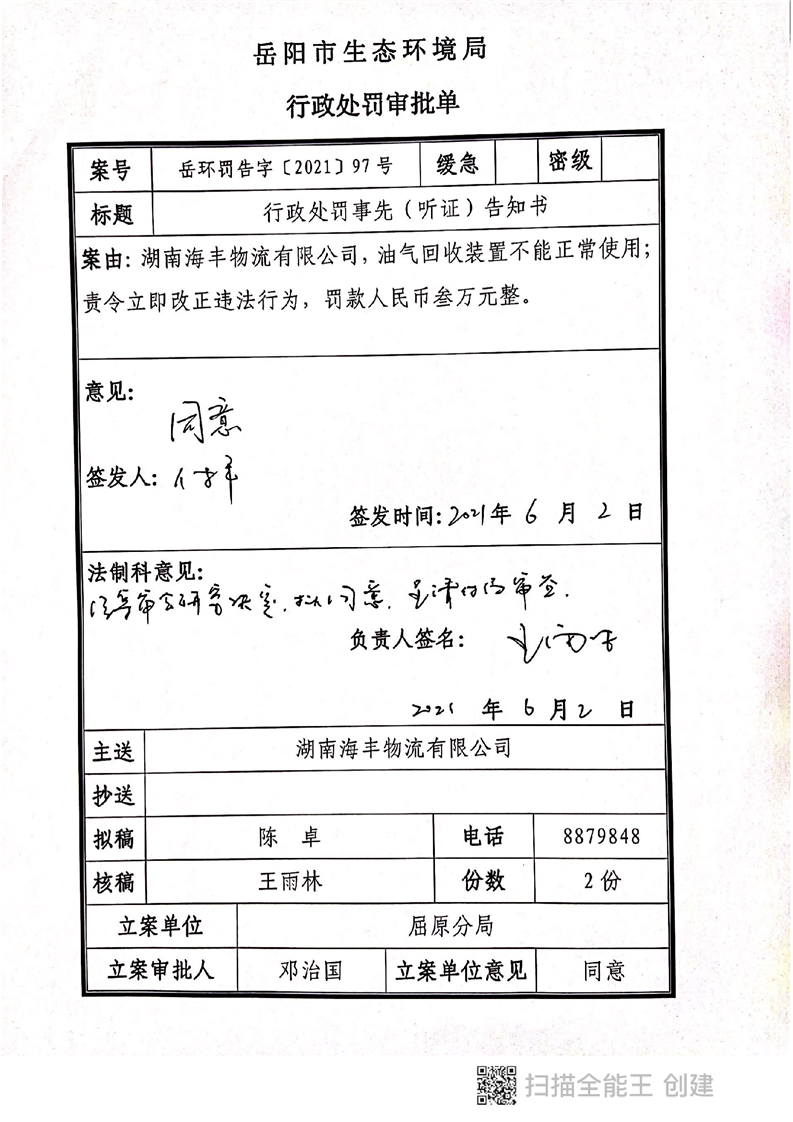 岳阳市生态环境局
行政处罚审批单
案号 岳环罚告字〔2021〕97号 缓急 密级
标题 行政处罚事先（听证）告知书
案由：湖南海丰物流有限公司，油气回收装置不能正常使用；
责令立即改正违法行为，罚款人民币叁万元整。
意见：
同意
签发人：
签发时间：2021年 6 月 2 日
法制科意见：
研究决定，拟同意，呈请 审签.
负责人签名：
2021 年 6 月 2 日
主送 湖南海丰物流有限公司
抄送
拟稿 陈 卓 电话 8879848
核稿 王雨林 份数 2份
立案单位 屈原分局
立案审批人 邓治国 立案单位意见 同意
扫描全能王 创建